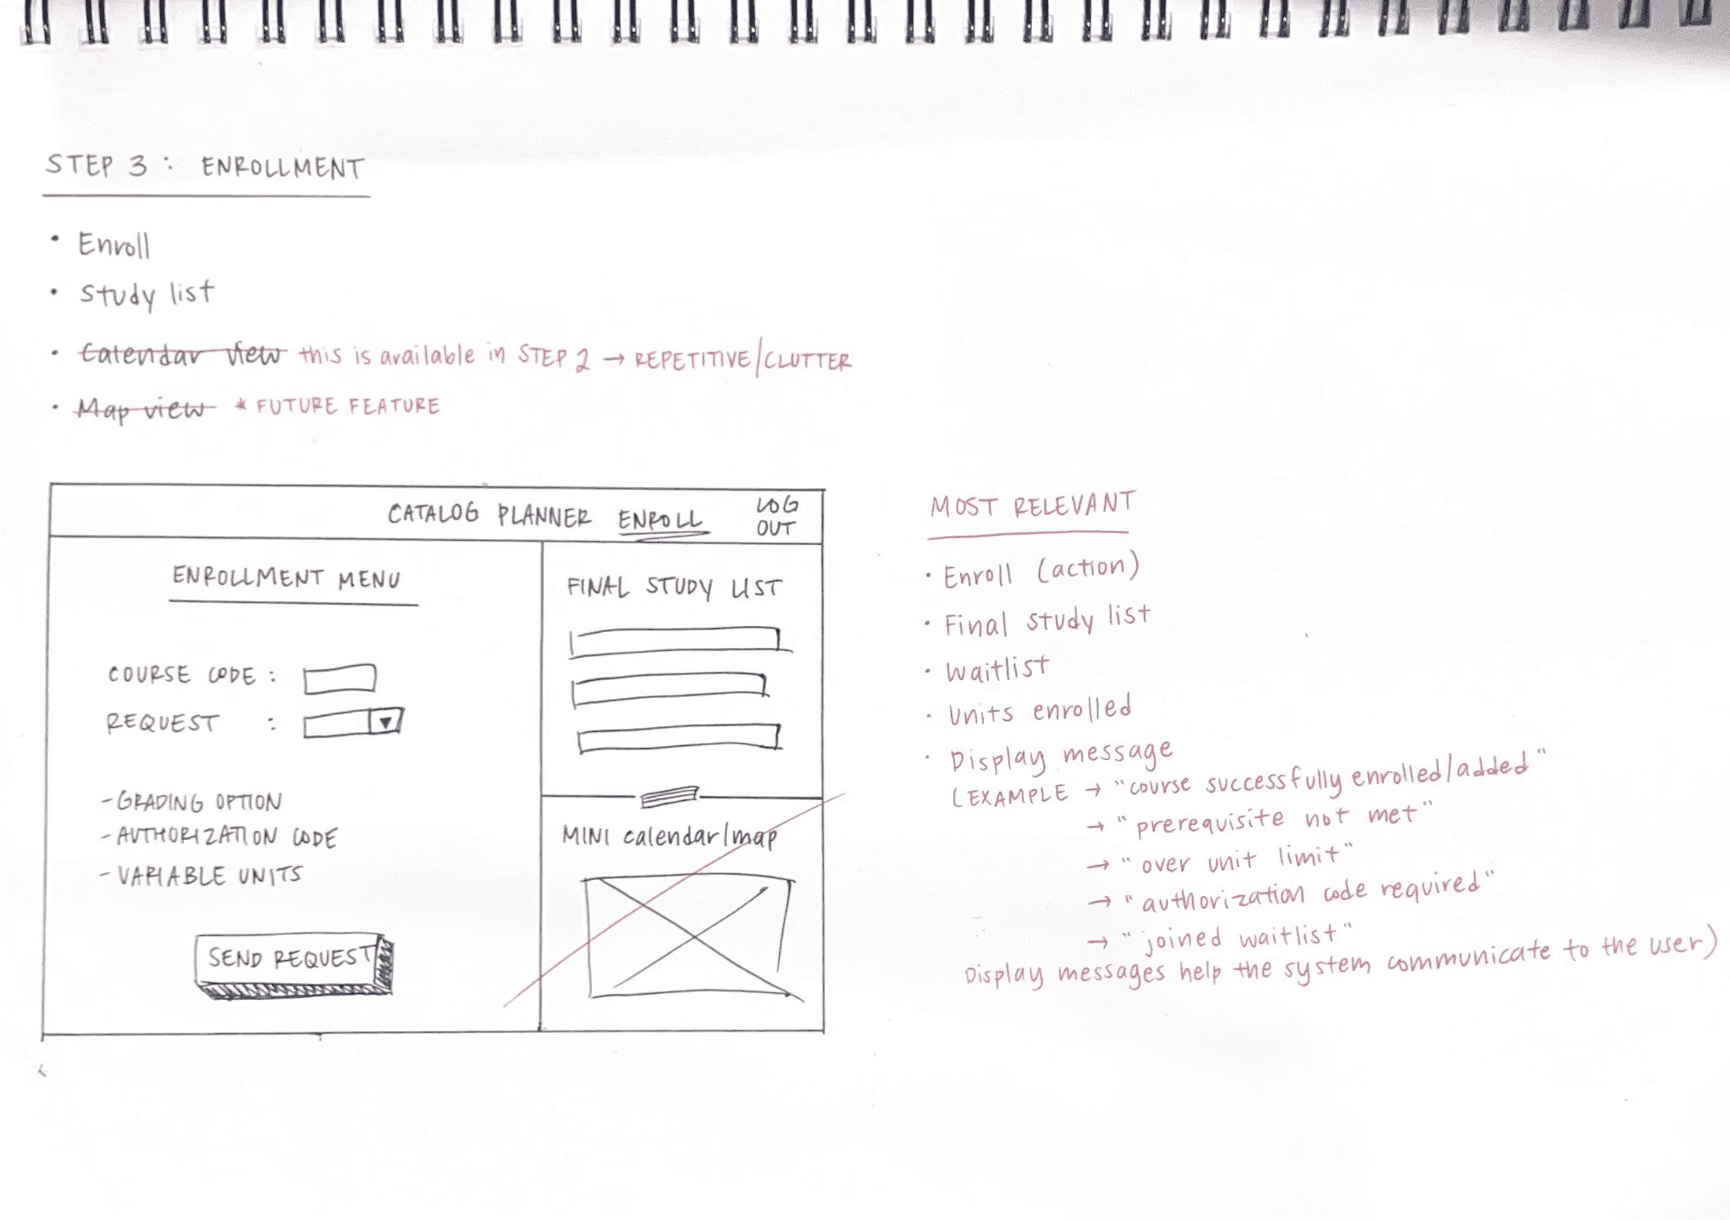 STEP 3 : ENROLLMENT
• Enroll
• Study list
• Calendar view this is available in STEP 2 → REPETITIVE/CLUTTER
• Map view * FUTURE FEATURE
CATALOG PLANNER ENROLL LOG OUT
ENROLLMENT MENU
COURSE CODE :
REQUEST :
- GRADING OPTION
- AUTHORIZATION CODE
- VARIABLE UNITS
SEND REQUEST
FINAL STUDY LIST
MINI calendar/map
MOST RELEVANT
• Enroll (action)
• Final study list
• Waitlist
• Units enrolled
• Display message
(EXAMPLE → "course successfully enrolled/added"
→ "prerequisite not met"
→ "over unit limit"
→ "authorization code required"
→ "joined waitlist"
Display messages help the system communicate to the user)